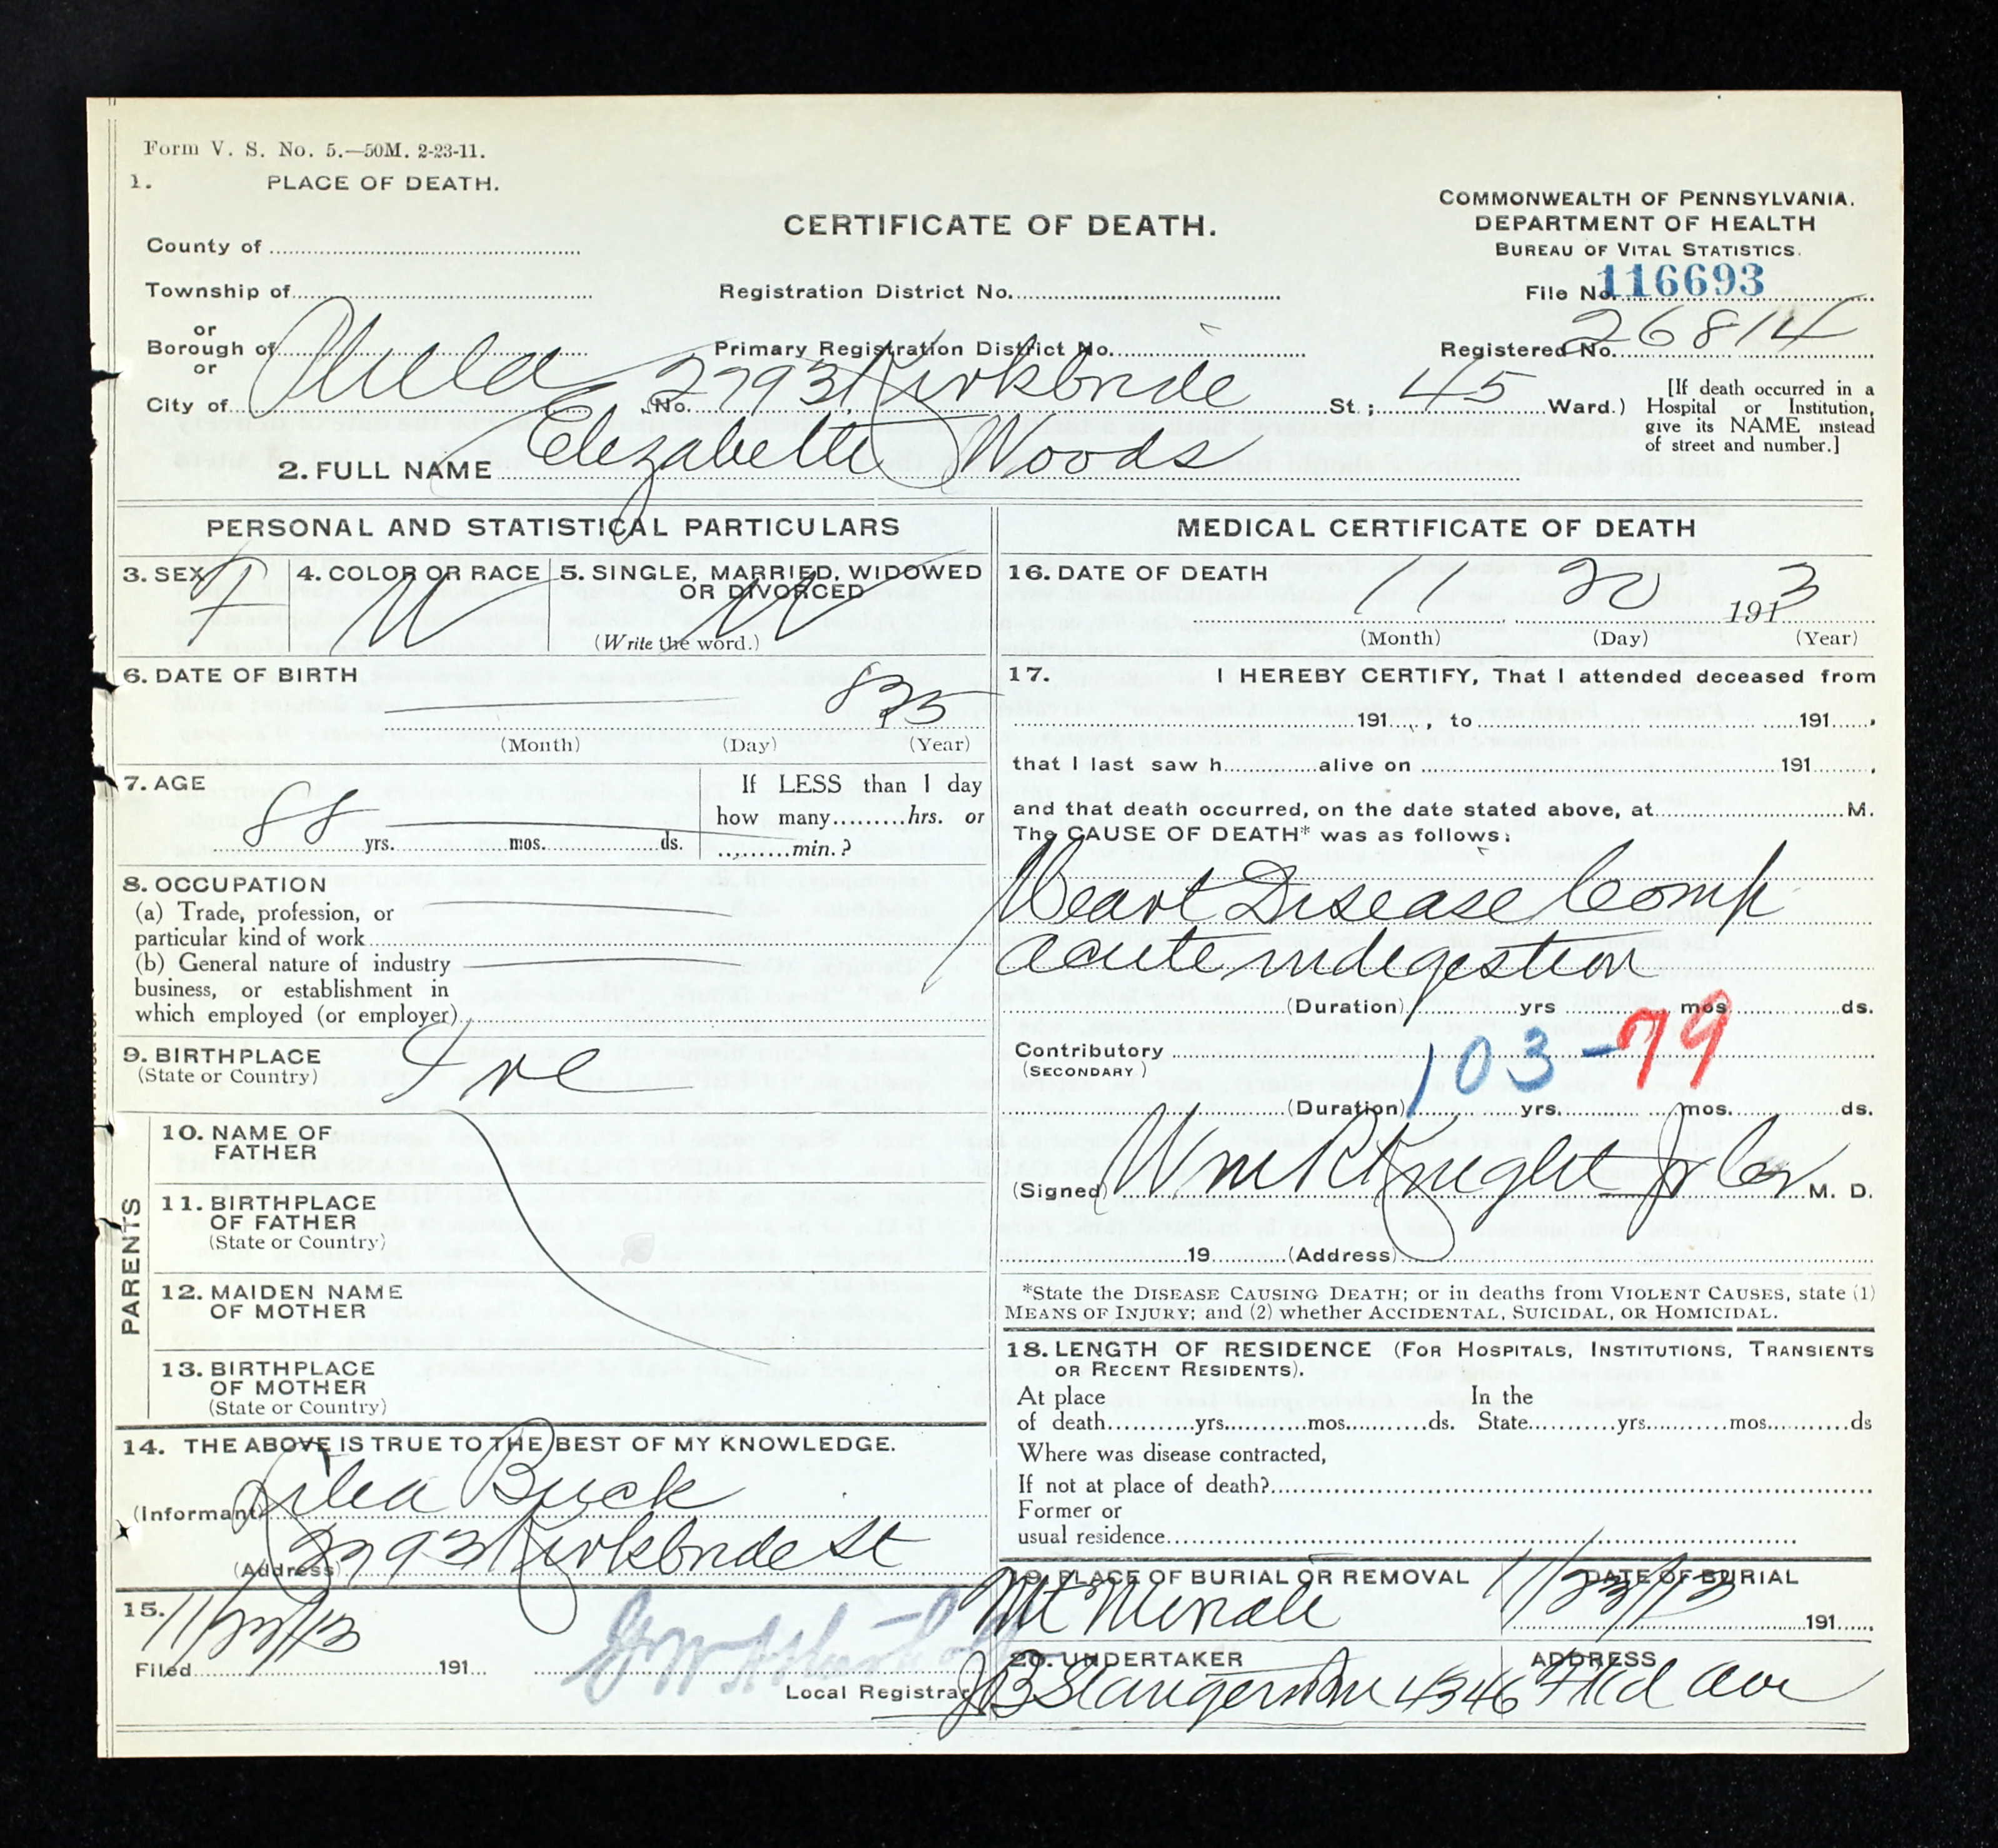 Form V. S. No. 5.—50M. 2-23-11.
1. PLACE OF DEATH.
COMMONWEALTH OF PENNSYLVANIA.
DEPARTMENT OF HEALTH
BUREAU OF VITAL STATISTICS.
CERTIFICATE OF DEATH.
County of
Township of
Registration District No.
File No. 116693
or
Borough of
Primary Registration District No.
Registered No. 26814
or
City of Phila (No. 2793 Kirkbride St.; 45 Ward.)
[If death occurred in a
Hospital or Institution,
give its NAME instead
of street and number.]
2. FULL NAME Elizabeth Woods
PERSONAL AND STATISTICAL PARTICULARS
3. SEX F
4. COLOR OR RACE W
5. SINGLE, MARRIED, WIDOWED
OR DIVORCED W
(Write the word.)
6. DATE OF BIRTH
825
(Month) (Day) (Year)
7. AGE
88 yrs. mos. ds.
If LESS than 1 day
how many hrs. or
min.?
8. OCCUPATION
(a) Trade, profession, or
particular kind of work
(b) General nature of industry
business, or establishment in
which employed (or employer)
9. BIRTHPLACE
(State or Country)
Ire
PARENTS
10. NAME OF
FATHER
11. BIRTHPLACE
OF FATHER
(State or Country)
12. MAIDEN NAME
OF MOTHER
13. BIRTHPLACE
OF MOTHER
(State or Country)
14. THE ABOVE IS TRUE TO THE BEST OF MY KNOWLEDGE.
(Informant) Buck
(Address) 2793 Kirkbride St
15. 11/22/13
Filed 191
Local Registrar
MEDICAL CERTIFICATE OF DEATH
16. DATE OF DEATH
11 20 1913
(Month) (Day) (Year)
17. I HEREBY CERTIFY, That I attended deceased from
191 , to 191 ,
that I last saw h alive on 191 ,
and that death occurred, on the date stated above, at M.
The CAUSE OF DEATH* was as follows:
Heart Disease Comp
acute indigestion
(Duration) yrs mos ds.
Contributory
(SECONDARY)
103-79
(Duration) yrs. mos. ds.
(Signed) Wm R Knight Jr Cor M. D.
19 (Address)
*State the DISEASE CAUSING DEATH; or in deaths from VIOLENT CAUSES, state (1)
MEANS OF INJURY; and (2) whether ACCIDENTAL, SUICIDAL, OR HOMICIDAL.
18. LENGTH OF RESIDENCE (FOR HOSPITALS, INSTITUTIONS, TRANSIENTS
OR RECENT RESIDENTS).
At place In the
of death yrs. mos. ds. State yrs. mos. ds
Where was disease contracted,
If not at place of death?
Former or
usual residence
19. PLACE OF BURIAL OR REMOVAL
Mt Moriah
DATE OF BURIAL
11/23/13 191
20. UNDERTAKER
ADDRESS
4346 Fkd ave